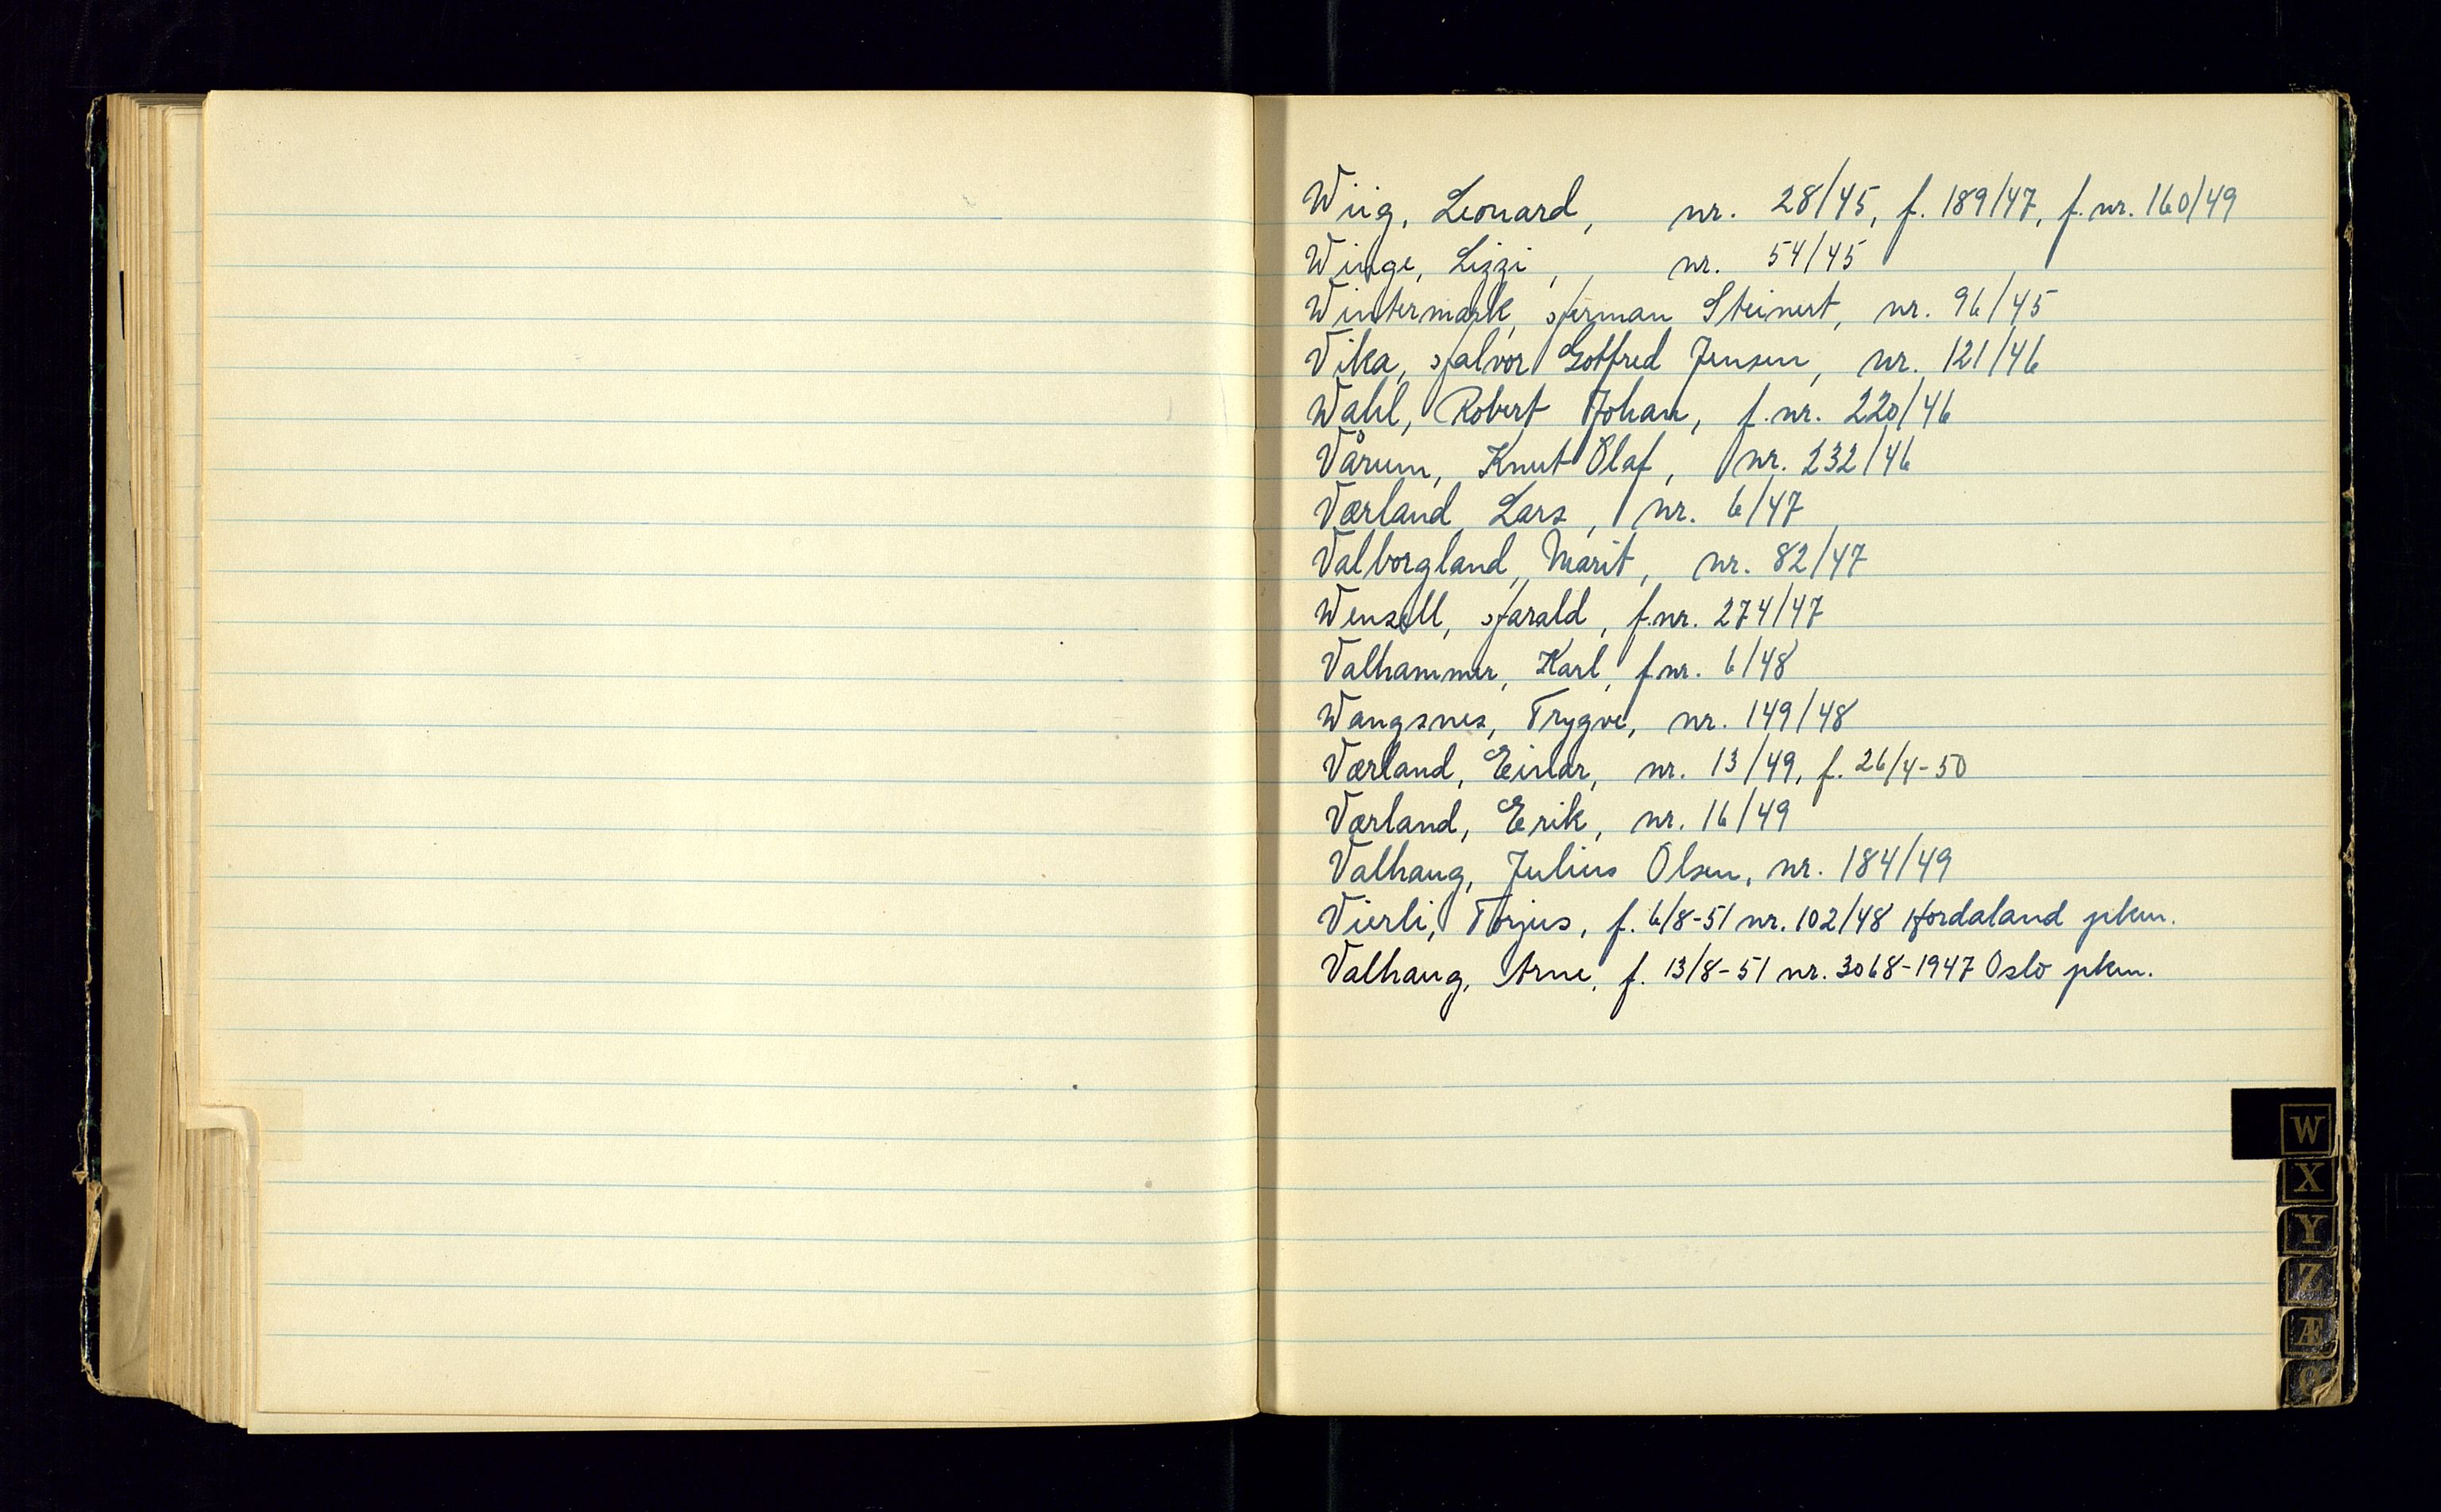 Wiig, Leonard, nr. 28/45, f. 189/47, f. nr. 160/49
Winge, Lizzi, nr. 54/45
Wintermark, Herman Steinert, nr. 96/45
Vika, Halvor Gotfred Jensen, nr. 121/46
Wahl, Robert Johan, f. nr. 220/46
Vårum, Knut Olaf, nr. 232/46
Værland, Lars, nr. 6/47
Valborgland, Marit, nr. 82/47
Wensell, Harald, f. nr. 274/47
Valhammer, Karl, f nr. 6/48
Wangsnes, Trygve, nr. 149/48
Værland, Einar, nr. 13/49, f. 26/4-50
Værland, Erik, nr. 16/49
Valhaug, Julius Olsen, nr. 184/49
Vierli, Torjus, f. 6/8-51 nr. 102/48 Hordaland pkm.
Valhaug, Arne, f. 13/8-51 nr. 3068-1947 Oslo pkm.
W
X
Y
Z
Æ
Ø